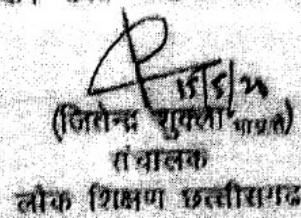 15/5/24
(जितेन्द्र शुक्ला भाप्रसे)
संचालक
लोक शिक्षण छत्तीसगढ़